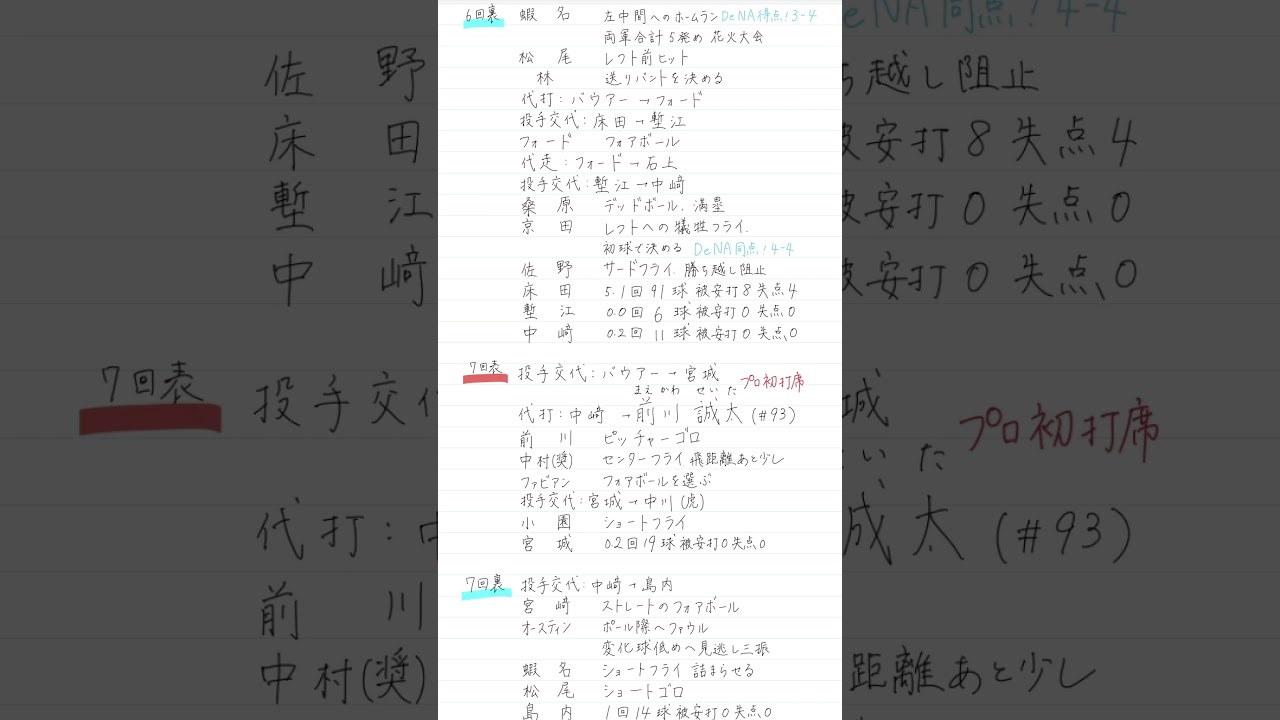 6回裏 蝦名 左中間へのホームラン DeNA得点!3-4
両軍合計5発め 花火大会
松尾 レフト前ヒット
林 送りバントを決める
代打:バウアー→フォード
投手交代:床田→塹江
フォード フォアボール
代走:フォード→石上
投手交代:塹江→中﨑
桑原 デッドボール.満塁
京田 レフトへの犠牲フライ.
初球で決める DeNA同点!4-4
佐野 サードフライ.勝ち越し阻止
床田 5.1回 91球 被安打8 失点4
塹江 0.0回 6球 被安打0 失点0
中﨑 0.2回 11球 被安打0 失点0
7回表 投手交代:バウアー→宮城
まえかわ せいた プロ初打席
代打:中﨑→前川 誠太(#93)
前川 ピッチャーゴロ
中村(奨) センターフライ 飛距離あと少し
ファビアン フォアボールを選ぶ
投手交代:宮城→中川(虎)
小園 ショートフライ
宮城 0.2回 19球 被安打0 失点0
7回裏 投手交代:中﨑→島内
宮﨑 ストレートのフォアボール
オースティン ポール際へファウル
変化球低めへ見逃し三振
蝦名 ショートフライ 詰まらせる
松尾 ショートゴロ
島内 1回 14球 被安打0 失点0